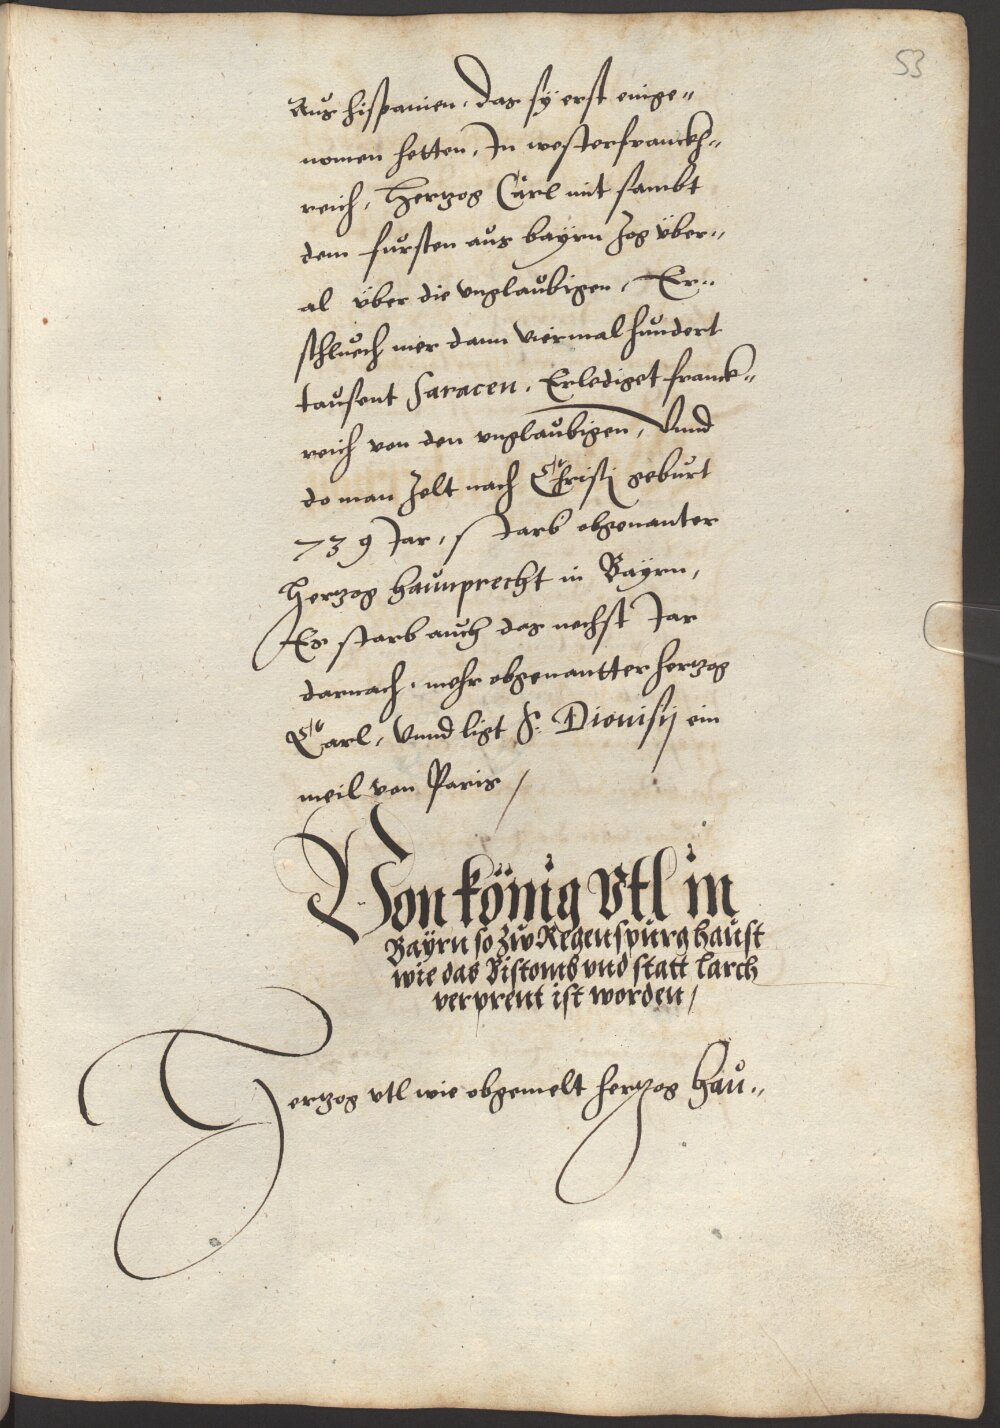 53
Aus hispanien, das sÿ erst einge„
nomen hetten, In westerfranckh„
reich, Hertzog Carl mit sambt
dem fursten aus bayrn zog vber„
al vber die vnglaubigen, Er„
schluech mer dann viermal hundert
tausent Saracen, Erlediget franck„
reich von den vnglaubigen, Vnnd
do man zelt nach Christi geburt
739 Jar, starb obgenanter
Hertzog haunprecht in Bayrn,
Es starb auch das nechst Jar
darnach, mehr obgenantter hertzog
Carl, Vnnd ligt S: Dionisÿ ein
meil von Paris /
Von könig Vtl in
Baÿrn so zuo Regenspurg haust
wie das Bistomb vnd statt Larch
verprent ist worden /
Hertzog vtl wie obgemelt hertzog Hau„